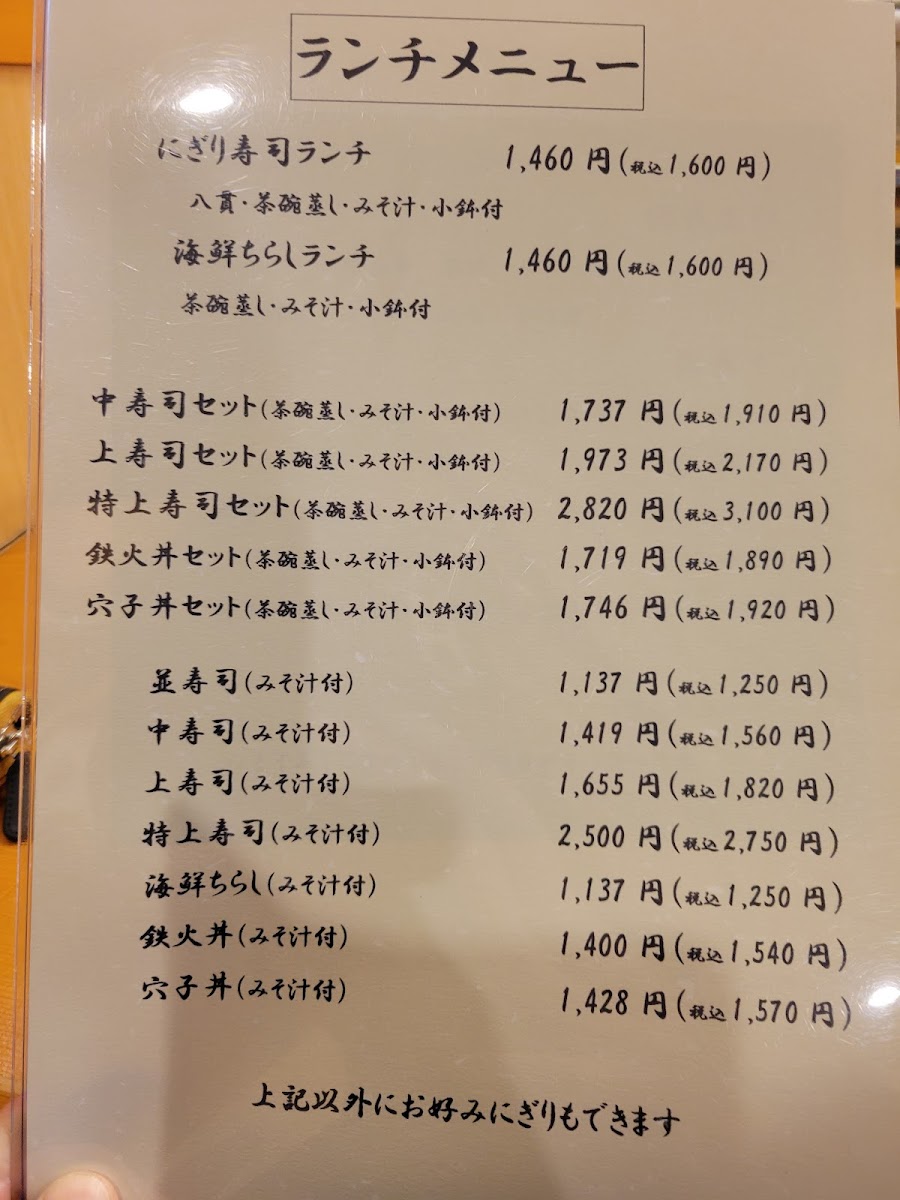 ランチメニュー
にぎり寿司ランチ 1,460 円(税込1,600 円)
八貫・茶碗蒸し・みそ汁・小鉢付
海鮮ちらしランチ 1,460 円(税込1,600 円)
茶碗蒸し・みそ汁・小鉢付
中寿司セット(茶碗蒸し・みそ汁・小鉢付) 1,737 円(税込1,910 円)
上寿司セット(茶碗蒸し・みそ汁・小鉢付) 1,973 円(税込2,170 円)
特上寿司セット(茶碗蒸し・みそ汁・小鉢付) 2,820 円(税込3,100 円)
鉄火丼セット(茶碗蒸し・みそ汁・小鉢付) 1,719 円(税込1,890 円)
穴子丼セット(茶碗蒸し・みそ汁・小鉢付) 1,746 円(税込1,920 円)
並寿司(みそ汁付) 1,137 円(税込1,250 円)
中寿司(みそ汁付) 1,419 円(税込1,560 円)
上寿司(みそ汁付) 1,655 円(税込1,820 円)
特上寿司(みそ汁付) 2,500 円(税込2,750 円)
海鮮ちらし(みそ汁付) 1,137 円(税込1,250 円)
鉄火丼(みそ汁付) 1,400 円(税込1,540 円)
穴子丼(みそ汁付) 1,428 円(税込1,570 円)
上記以外にお好みにぎりもできます